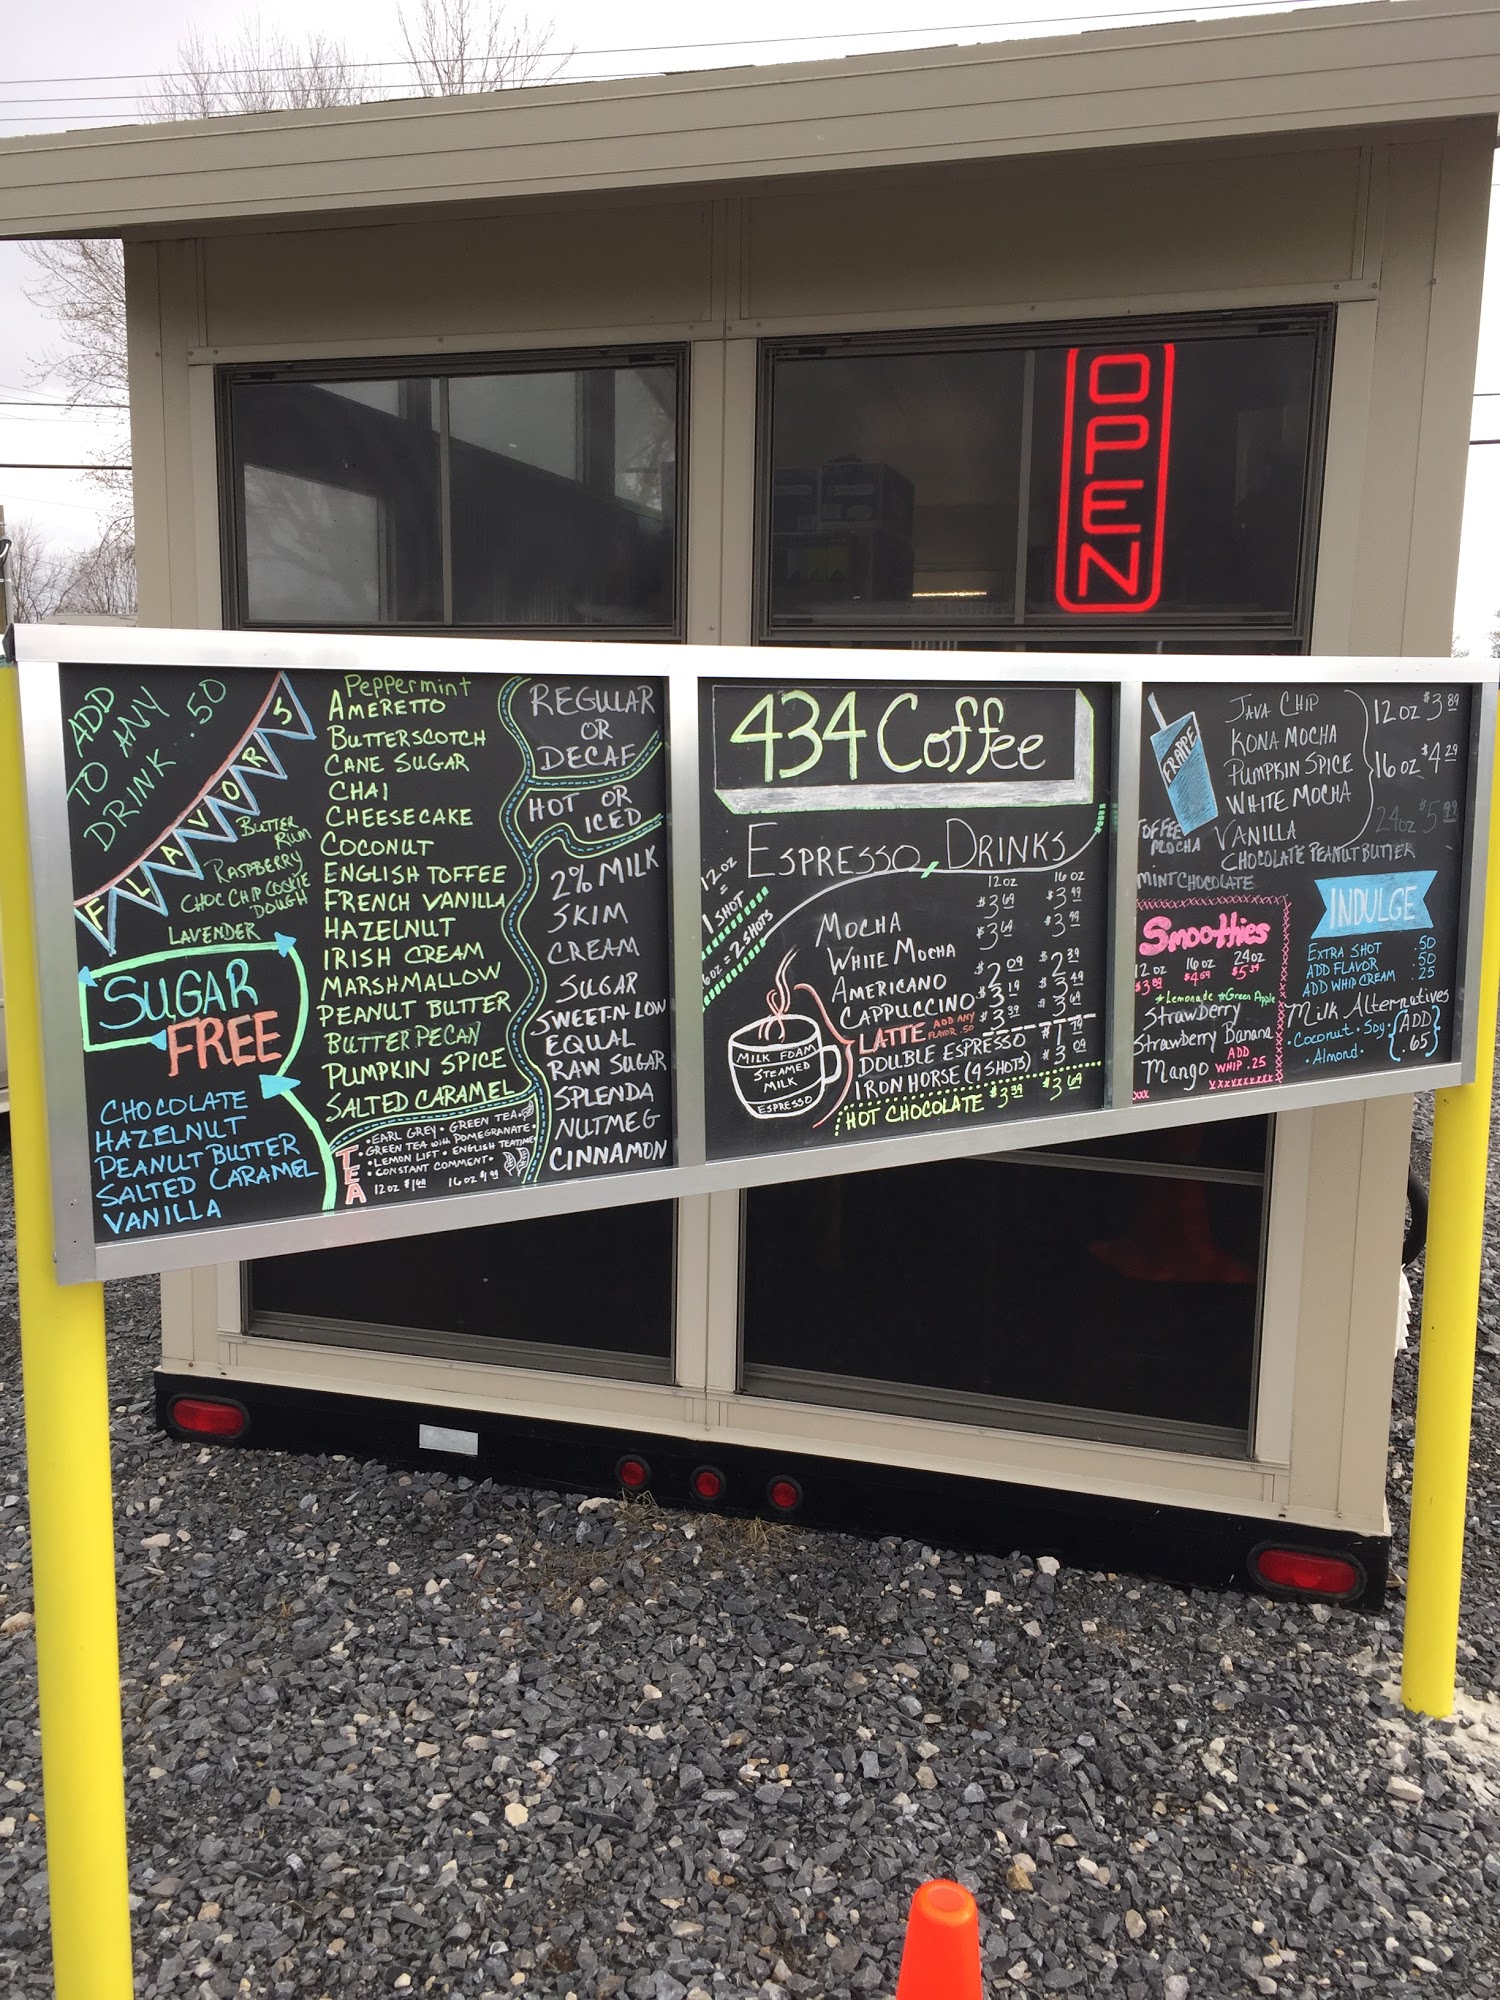 OPEN
ADD
TO ANY
DRINK .50
FLAVORS
BUTTER
RUM
RASPBERRY
CHOC CHIP COOKIE
DOUGH
LAVENDER
SUGAR
FREE
CHOCOLATE
HAZELNUT
PEANUT BUTTER
SALTED CARAMEL
VANILLA
PEPPERMINT
AMERETTO
BUTTERSCOTCH
CANE SUGAR
CHAI
CHEESECAKE
COCONUT
ENGLISH TOFFEE
FRENCH VANILLA
HAZELNUT
IRISH CREAM
MARSHMALLOW
PEANUT BUTTER
BUTTER PECAN
PUMPKIN SPICE
SALTED CARAMEL
TEA
• EARL GREY • GREEN TEA •
GREEN TEA WITH POMEGRANATE •
• LEMON LIFT • ENGLISH TEATIME
• CONSTANT COMMENT •
12 OZ $1.69 16 OZ $1.99
REGULAR
OR
DECAF
HOT OR
ICED
2% MILK
SKIM
CREAM
SUGAR
SWEET-N-LOW
EQUAL
RAW SUGAR
SPLENDA
NUTMEG
CINNAMON
434 Coffee
ESPRESSO DRINKS
12 OZ =
1 SHOT
16 OZ = 2 SHOTS
12 OZ 16 OZ
MOCHA $3.69 $3.99
WHITE MOCHA $3.69 $3.99
AMERICANO $2.09 $2.39
CAPPUCCINO $3.19 $3.49
LATTE ADD ANY FLAVOR .50 $3.39 $3.69
DOUBLE ESPRESSO $1.79
IRON HORSE (4 SHOTS) $3.09
HOT CHOCOLATE $3.39 $3.69
MILK FOAM
STEAMED
MILK
ESPRESSO
FRAPPE
JAVA CHIP
KONA MOCHA
PUMPKIN SPICE
WHITE MOCHA
VANILLA
CHOCOLATE PEANUT BUTTER
TOFFEE
MOCHA
MINT CHOCOLATE
12 OZ $3.89
16 OZ $4.29
24 OZ $5.99
Smoothies
12 OZ 16 OZ 24 OZ
$3.89 $4.69 $5.39
*Lemonade *Green Apple
Strawberry
Strawberry Banana
Mango
ADD
WHIP .25
INDULGE
EXTRA SHOT .50
ADD FLAVOR .50
ADD WHIP CREAM .25
Milk Alternatives
• Coconut • Soy •
• Almond •
{ADD
.65}